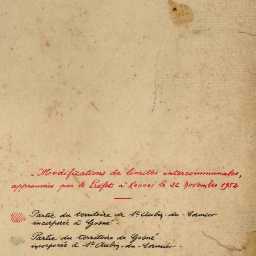 Modifications de limites intercommunales,
approuvées par le Préfet à Rennes le 22 Novembre 1954
Partie du territoire de St Aubin-du-Cormier
incorporée à Gosné.
Partie du territoire de Gosné
incorporée à St Aubin-du-Cormier.